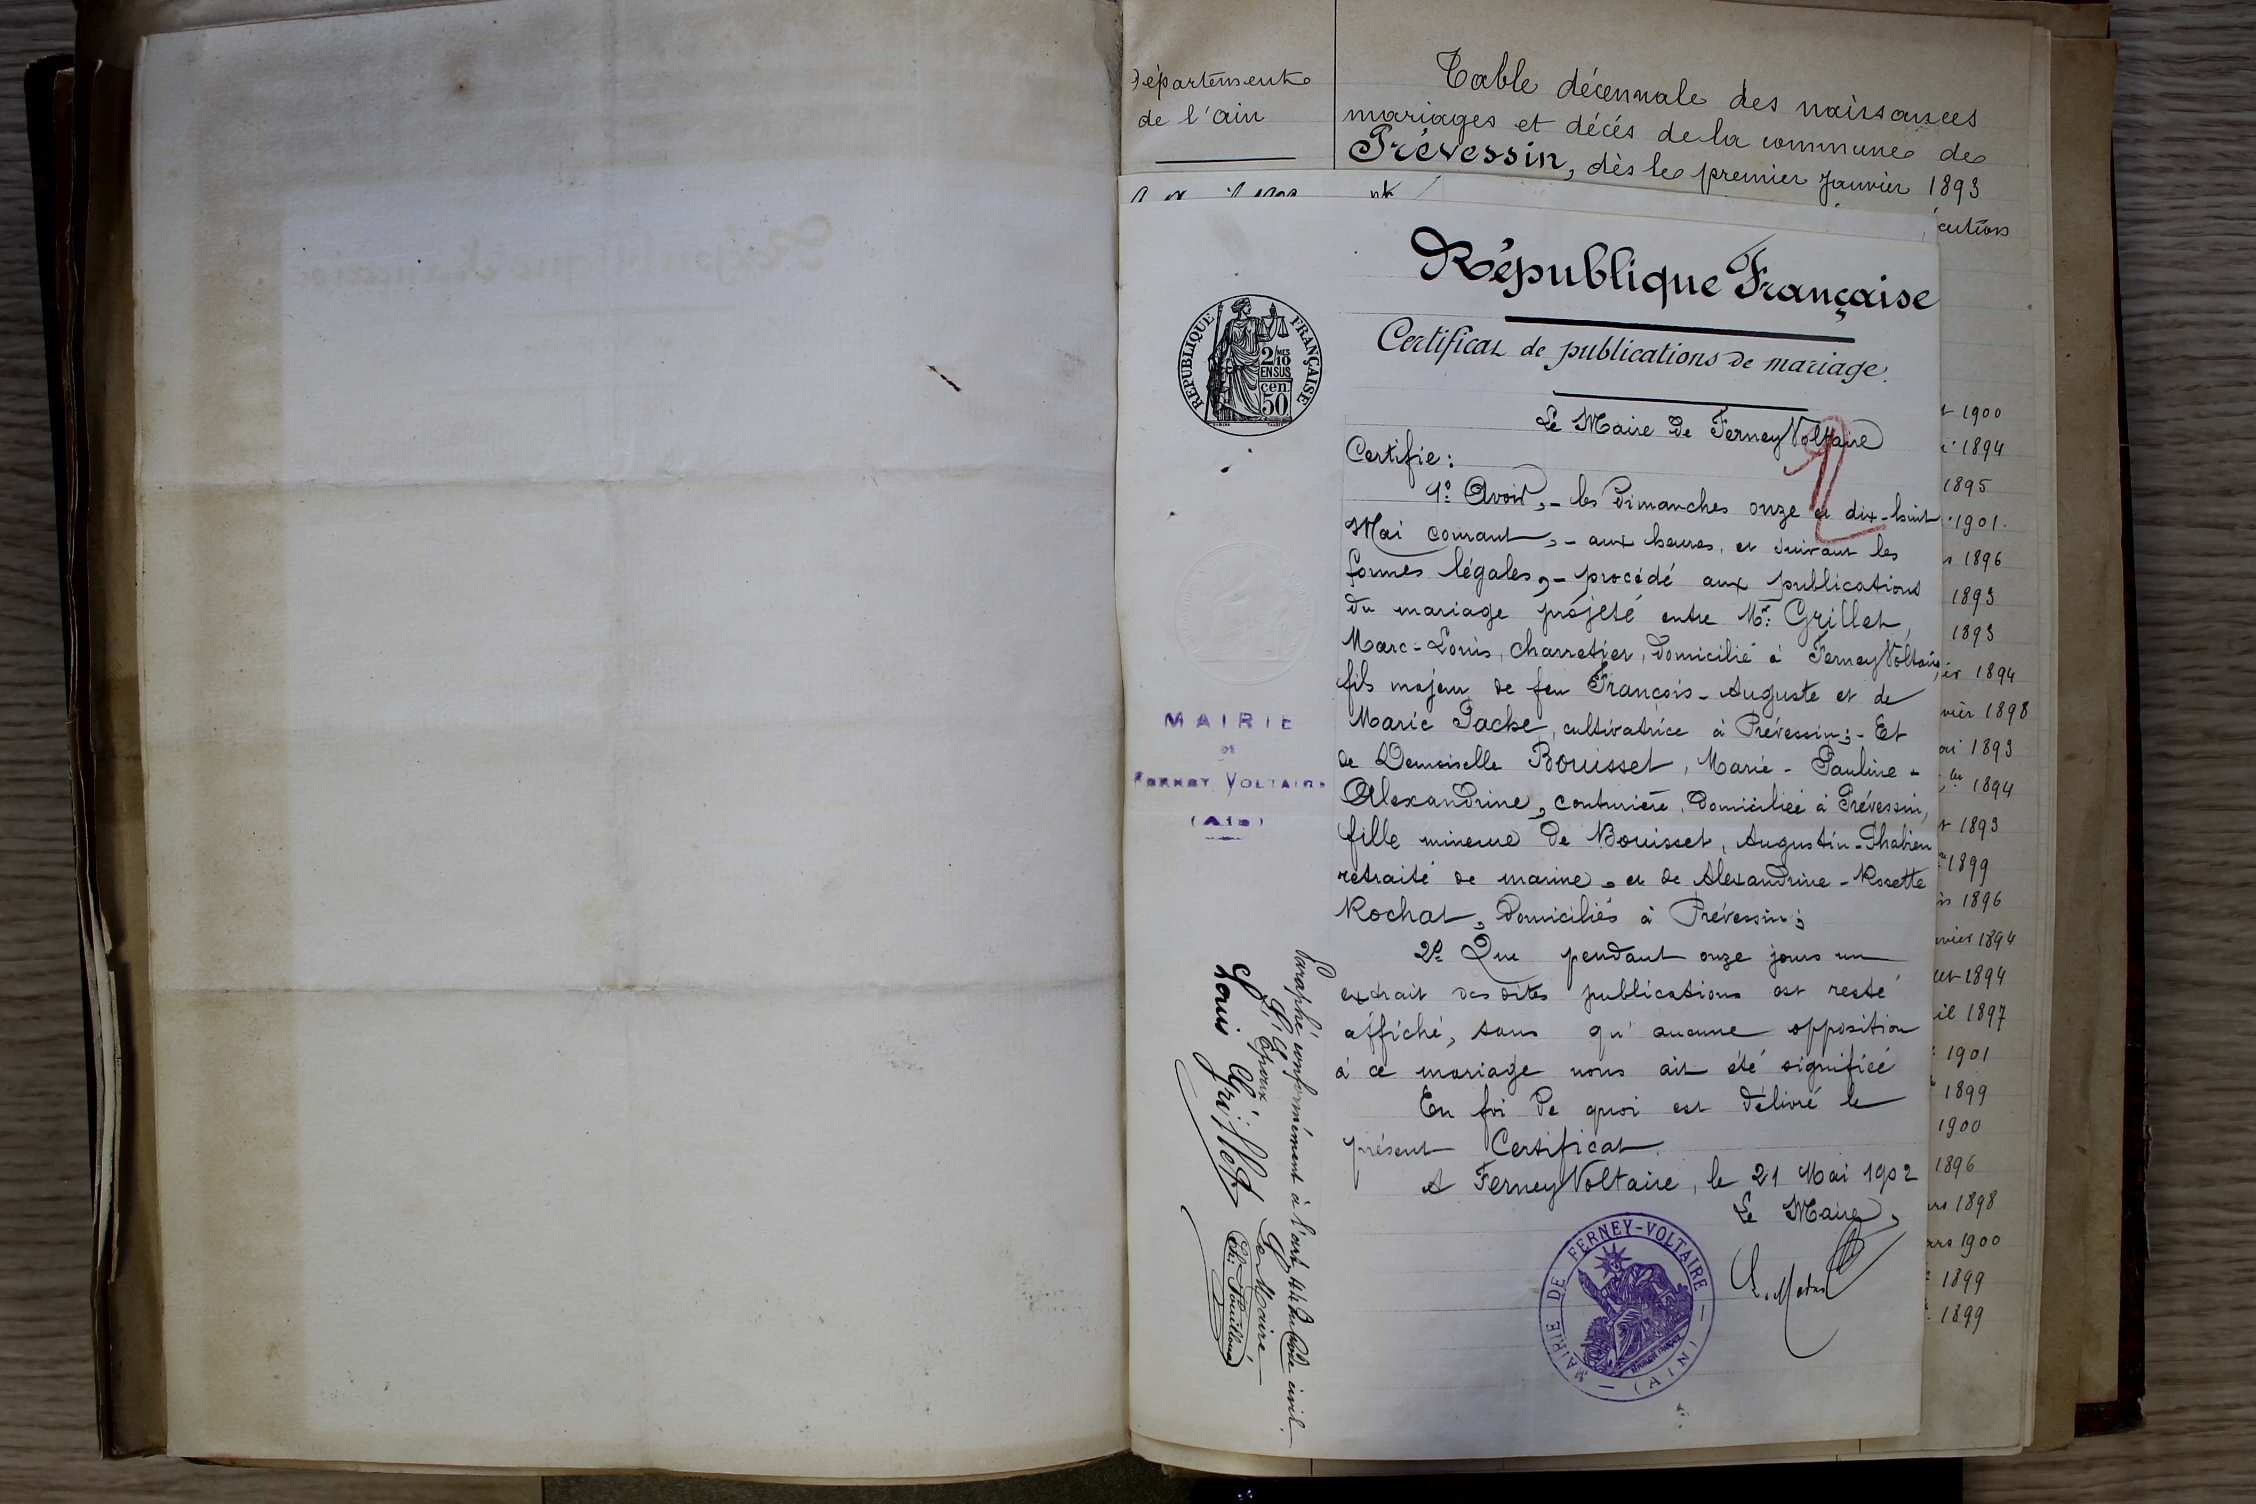 Département
de l'ain
Table décennale des naissances
mariages et décés de la commune de
Prévessin, dès le premier Janvier 1893
cution
République Française
Certificat de publications de mariage.
RÉPUBLIQUE FRANÇAISE
2/MES
10
EN SUS
cen.
50
Le Maire de Ferney Voltaire
Certifie:
1º Avoir, - les Dimanches onze et dix-huit
Mai courant, - aux heures, et suivant les
formes légales, - procédé aux publications
du mariage projeté entre Mr: Grillet,
Marc-Louis, charretier, domicilié à Ferney Voltaire,
fils majeur de feu François-Auguste et de
Marie Pache, cultivatrice à Prévessin; - Et
de Demoiselle Bouisset, Marie-Pauline-
Alexandrine, couturière, domiciliée à Prévessin,
fille mineure de Bouisset, Augustin-
retraité de marine, et de Alexandrine-Rosette
Rochat, domiciliés à Prévessin;
2º Que pendant onze jours un
extrait des dites publications est resté
affiché, sans qu'aucune opposition
à ce mariage nous ait été signifiée
En foi de quoi est délivré le
présent Certificat.
A Ferney Voltaire, le 21 Mai 1902
Le Maire,
MAIRIE DE FERNEY-VOLTAIRE
(AIN)
MAIRIE
DE
FERNEY VOLTAIRE
(Ain)
Paraphé conformément à l'art. 44 du Code civil.
L'Epoux
Le Maire
Louis Grillet
1900
1894
1895
1901.
1896
1893
1893
er 1894
vier 1898
ai 1893
1894
1893
1899
1896
nvier 1894
let 1894
il 1897
1901
1899
1900
1896
rs 1898
ars 1900
1899
1899